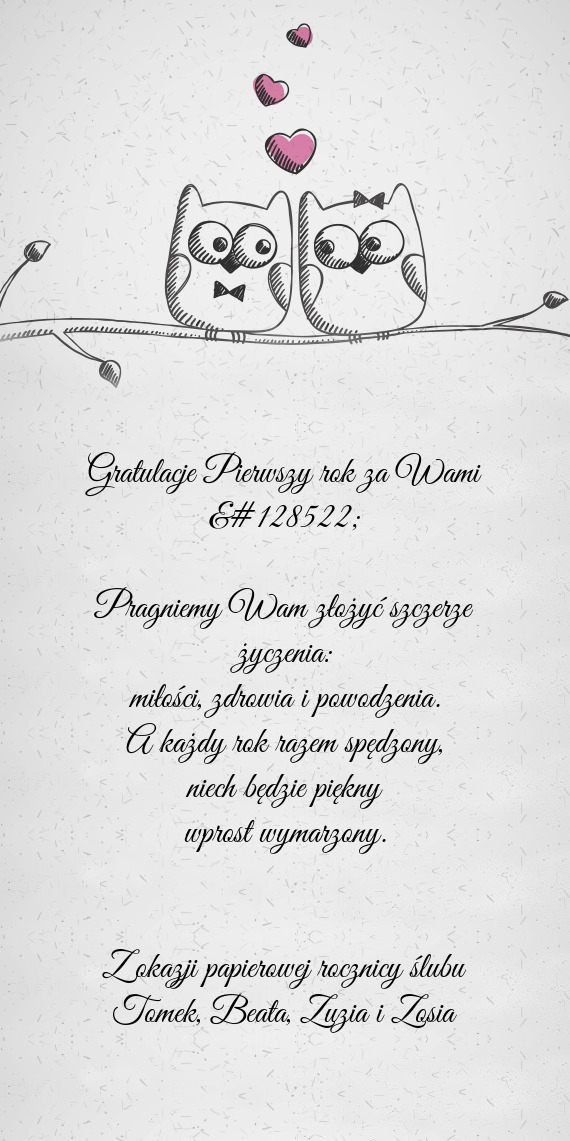 Gratulacje Pierwszy rok za Wami
&#128522;
Pragniemy Wam złożyć szczerze
życzenia:
miłości, zdrowia i powodzenia.
A każdy rok razem spędzony,
niech będzie piękny
wprost wymarzony.
Zokazji papierowej rocznicy ślubu
Tomek, Beata, Zuzia i Zosia